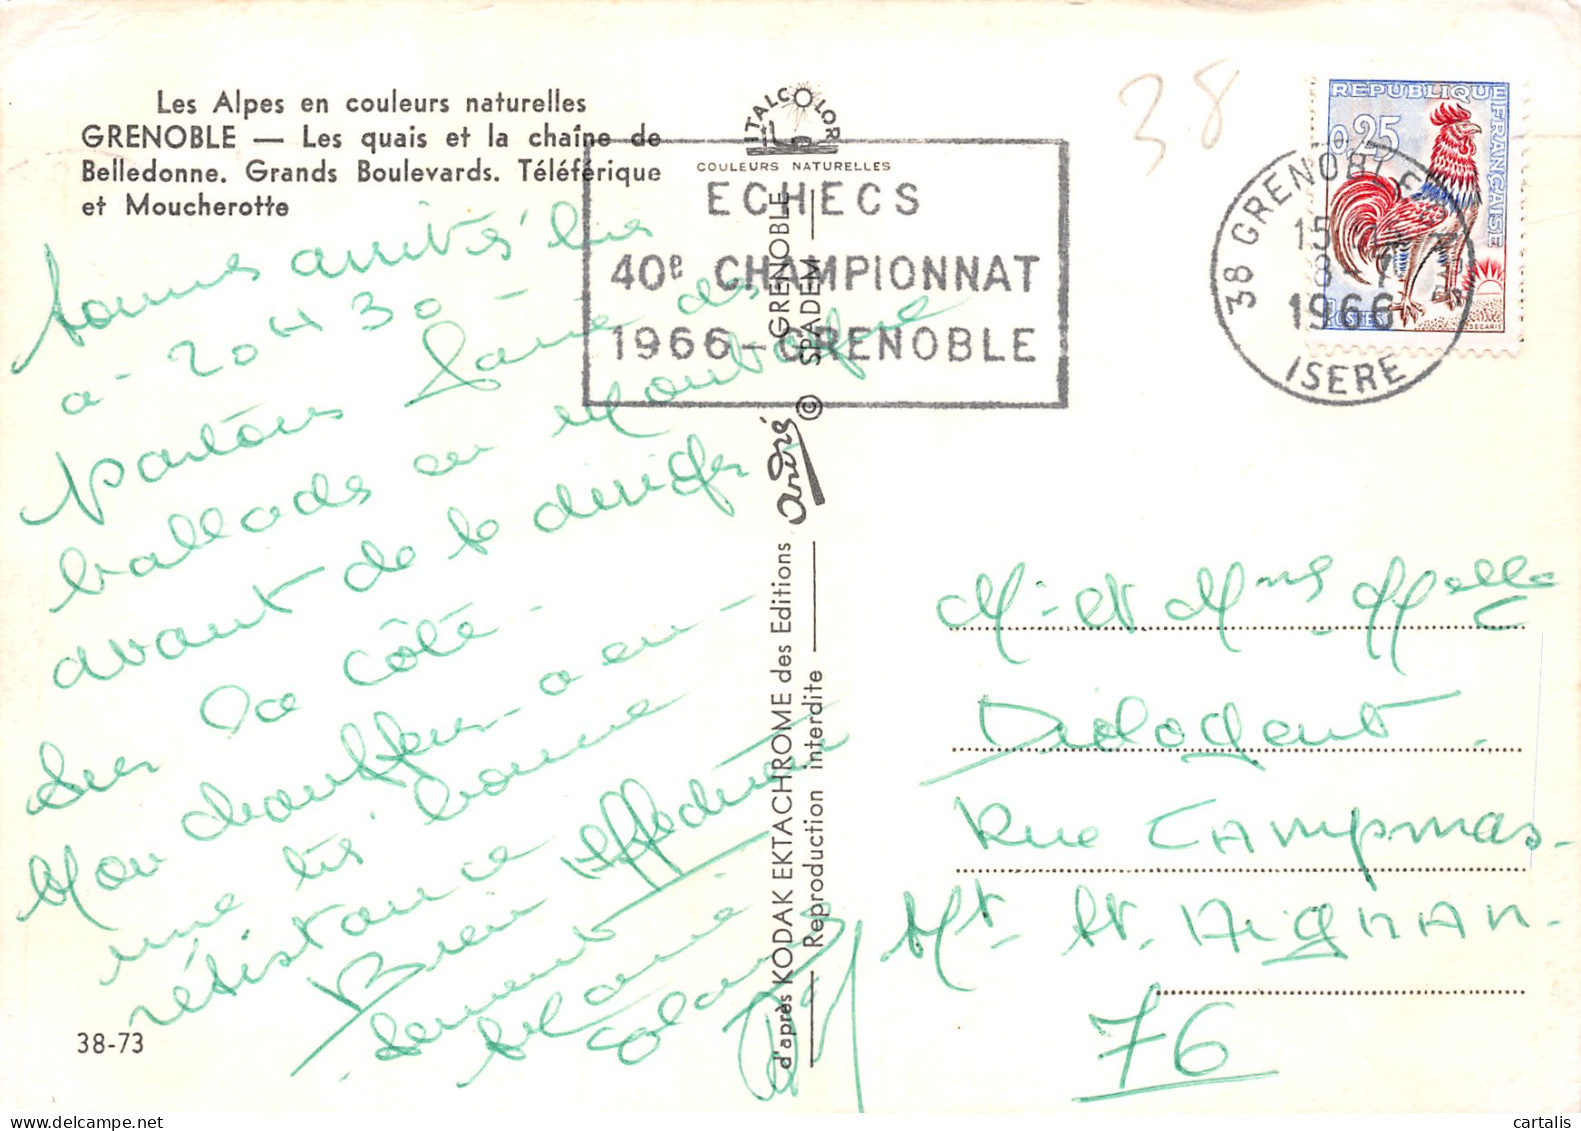 Les Alpes en couleurs naturelles
GRENOBLE — Les quais et la chaîne de
Belledonne. Grands Boulevards. Téléférique
et Moucherotte
ITALCOLOR
COULEURS NATURELLES
ECHECS
40e CHAMPIONNAT
1966 - GRENOBLE
38
REPUBLIQUE FRANÇAISE
0,25
POSTES
DECARIS
38 GRENOBLE
15
8 - 7
1966
ISERE
sommes arrivés hier
à 20 H 30
partons faire des
ballade en montagne
avant de se diriger
sur la côté
Mon chauffeur a eu
une très bonne
résistance
Bien affectueusement
GRENOBLE
© SPADEM
André
d'après KODAK EKTACHROME des Editions
Reproduction interdite
Mr et Mme Melle
Rue CAMpmas
Mt St AigNAN
76
38-73
cartalis